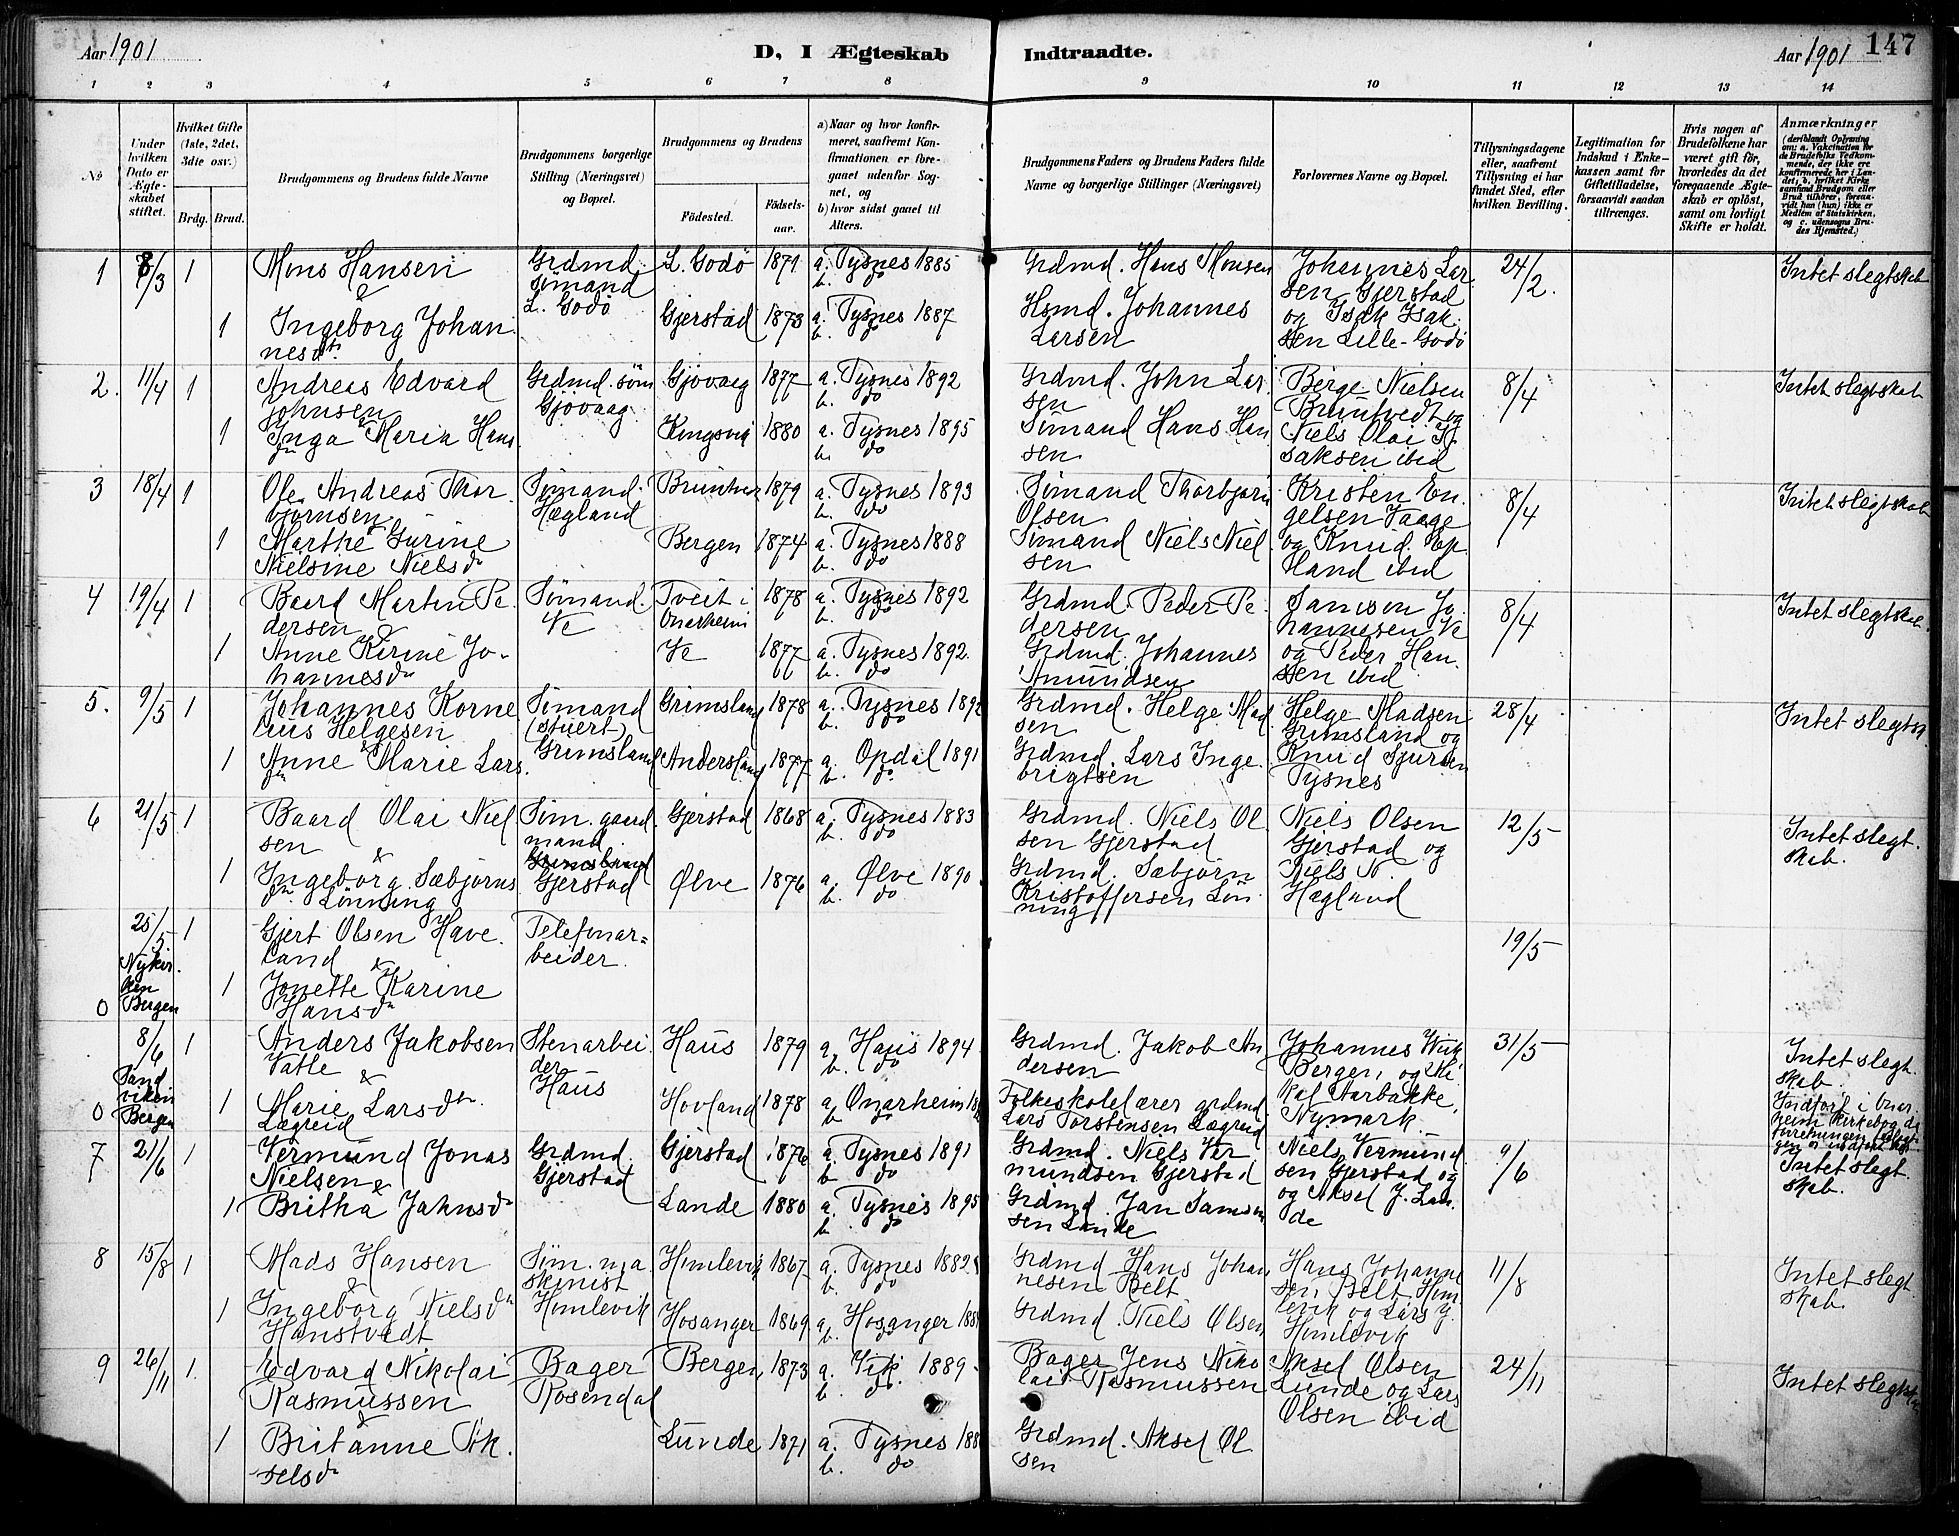 Aar 1901
D, I Ægteskab Indtraadte.
Aar 1901
147
1 2 3 4 5 6 7 8 9 10 11 12 13 14
No
Under hvilken Dato er Ægteskabet stiftet.
Hvilket Gifte (1ste, 2det, 3die osv.)
Brdg. Brud.
Brudgommens og Brudens fulde Navne
Brudgommens borgerlige Stilling (Næringsvei) og Bopæl.
Brudgommens og Brudens
Födested. Födselsaar.
a) Naar og hvor konfirmeret, saafremt Konfirmationen er foregaaet udenfor Sognet, og
b) hvor sidst gaaet til Alters.
Brudgommens Faders og Brudens Faders fulde Navne og borgerlige Stillinger (Næringsvei)
Forlovernes Navne og Bopæl.
Tillysningsdagene eller, saafremt Tillysning ei har fundet Sted, efter hvilken Bevilling.
Legitimation for Indskud i Enkekassen samt for Giftetilladelse, forsaavidt saadan tiltrænges.
Hvis nogen af Brudefolkene har været gift för, hvorledes da det foregaaende Ægteskab er oplöst, samt om lovligt Skifte er holdt.
Anmærkninger
(deriblandt Oplysning om: a. Vakcination for de Brudefolks Vedkommende, der ikke ere konfirmerede her i Landet, b. hvilket Kirkesamfund Brudgom eller Brud tilhörer, forsaavidt han (hun) ikke er Medlem af Statskirken, og c. udensogns Brudes Hjemsted.)
1 8/3 1 Mons Hansen & Grdmd. sömand L. Godö L. Godö 1871 a. Tysnes 1885 b. do Grdmd. Hans Monsen Johannes Larsen Gjerstad og Isak Isaksen Lille-Godö 24/2. Intet slegtskab
1 Ingeborg Johannesdtr. Gjerstad 1873 a. Tysnes 1887 b. do Hsmd. Johannes Larsen
2. 11/4 1 Andreas Edvard Johnsen & Grdmd. söm Gjövaag Gjövaag 1877 a. Tysnes 1892 b. do Grdmd. John Larsen Börge Nielsen Bruntvedt og Niels Olai Isaksen ibid 8/4 Intet slegtskab
1 Inga Maria Hansdtr 1880 a. Tysnes 1895 b. do Sömand Hans Hansen
3 18/4 1 Ole Andreas Thorbjörnsen & Sömand. Hægland 1879 a. Tysnes 1893 b. do Sömand Thorbjörn Olsen Kristen Engelsen Vaage og Knud ibid 8/4 Intet slegtskab
1 Marthe Gurine Nielsine Nielsdr Bergen 1874 a. Tysnes 1888 b. do Sömand Niels Nielsen
4 19/4 1 Baard Martin Pedersen & Sömand. Ve Tveit i Onarheim 1878 a. Tysnes 1892 b. do Grdmd. Peder Pedersen Samson Johannesen Ve og Peder Hansen ibid 8/4 Intet slegtskab
1 Anne Karine Johannesdr Ve 1877 a. Tysnes 1892. b. do Grdmd. Johannes Amundsen
5. 9/5 1 Johannes Kornelius Helgesen & Sömand (stuert) Grimsland Grimsland 1878 a. Tysnes 1892 b. do Grdmd. Helge Madsen Helge Madsen Grimsland og Knud Sjursen Tysnes 28/4 Intet slegtsk.
1 Anne Marie Larsdr Andersland 1877 a. Opdal 1891 b. do Grdmd. Lars Ingebrigtsen
6 21/5 1 Baard Olai Nielsen & Söm. gaardmand Grimsland Gjerstad Gjerstad 1868 a. Tysnes 1883 b. do Grdmd. Niels Olsen Gjerstad Niels Olsen Gjerstad og Niels N. Hægland 12/5 Intet slegtskab.
1 Ingeborg Sæbjörnsdr Lönning Ølve 1876 a. Ølve 1890. b. do Grdmd. Sæbjörn Kristoffersen Lönning
0 25/5 Nykirken Bergen 1 Gjert Olsen Haveland & Telefonarbeider. 19/5
1 Jonette Karine Hansdr
0 8/6 Sandviken Bergen 1 Anders Jakobsen Vatle & Stenarbeider Haus Haus 1879 a. Haus 1894 b. do Grdmd. Jakob Andersen Johannes Bergen, og Mikal Aarbakke, Nymark. 31/5 Intet slegtskab. Indfört i Onarheim Kirkebog da
1 Marie Larsdtr. Lægreid Hovland 1878 a. Onarheim b. do Folkeskolelærer grdmd. Lars Torstensen Lægreid
7 21/6 1 Vermund Jonas Nielsen & Grdmd. Gjerstad Gjerstad 1876 a. Tysnes 1891 b do Grdmd. Niels Vermundsen Gjerstad Niels Vermundsen Gjerstad og og Aksel J. Lande 9/6 Intet slegtskab.
1 Britha Jahnsdr Lande 1880 a. Tysnes 1895 b. do Grdmd. Jan Samsonsen Lande
8 15/8 1 Mads Hansen & Söm. maskinist Humlevik Humlevik 1867 a. Tysnes 1882. b. do Grdmd Hans Johannesen Belt Hans Johannesen Belt Humlevik og Lars J. Humlevik 11/8 Intet slegtskab.
1 Ingeborg Nielsdr Hanstvedt Hosanger 1869 a. Hosanger b. do Grdmd. Niels Olsen
9 26/11 1. Edvard Nikolai Rasmussen & Bager Rosendal Bergen 1873 a. Vik. 1889 b. do. Bager Jens Nikolai Rasmussen Aksel Olsen Lunde og Lars Olsen ibid 24/11 Intet slegtsk.
1 Britanne Akselsdr Lunde 1871 a. Tysnes b. do Grdmd. Aksel Olsen